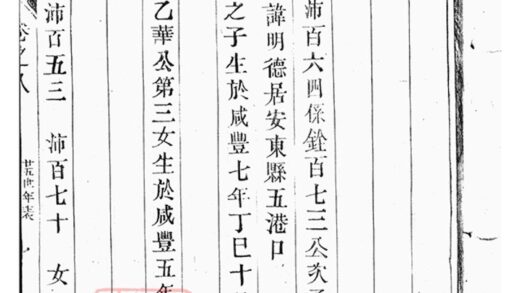 沛百六四係銓百七三公次子
諱明德居安東縣五港口
之子生於咸豐七年丁巳十
乙華公第三女生於咸豐五年
沛百五三　沛百七十　女
卷之八
年表